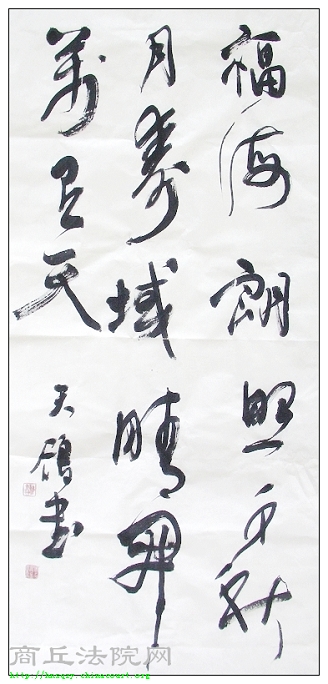 福海朗照千秋
月壽域晴開
萬里天
天鴿書
商丘法院网
http://hnsqzy.chinacourt.org